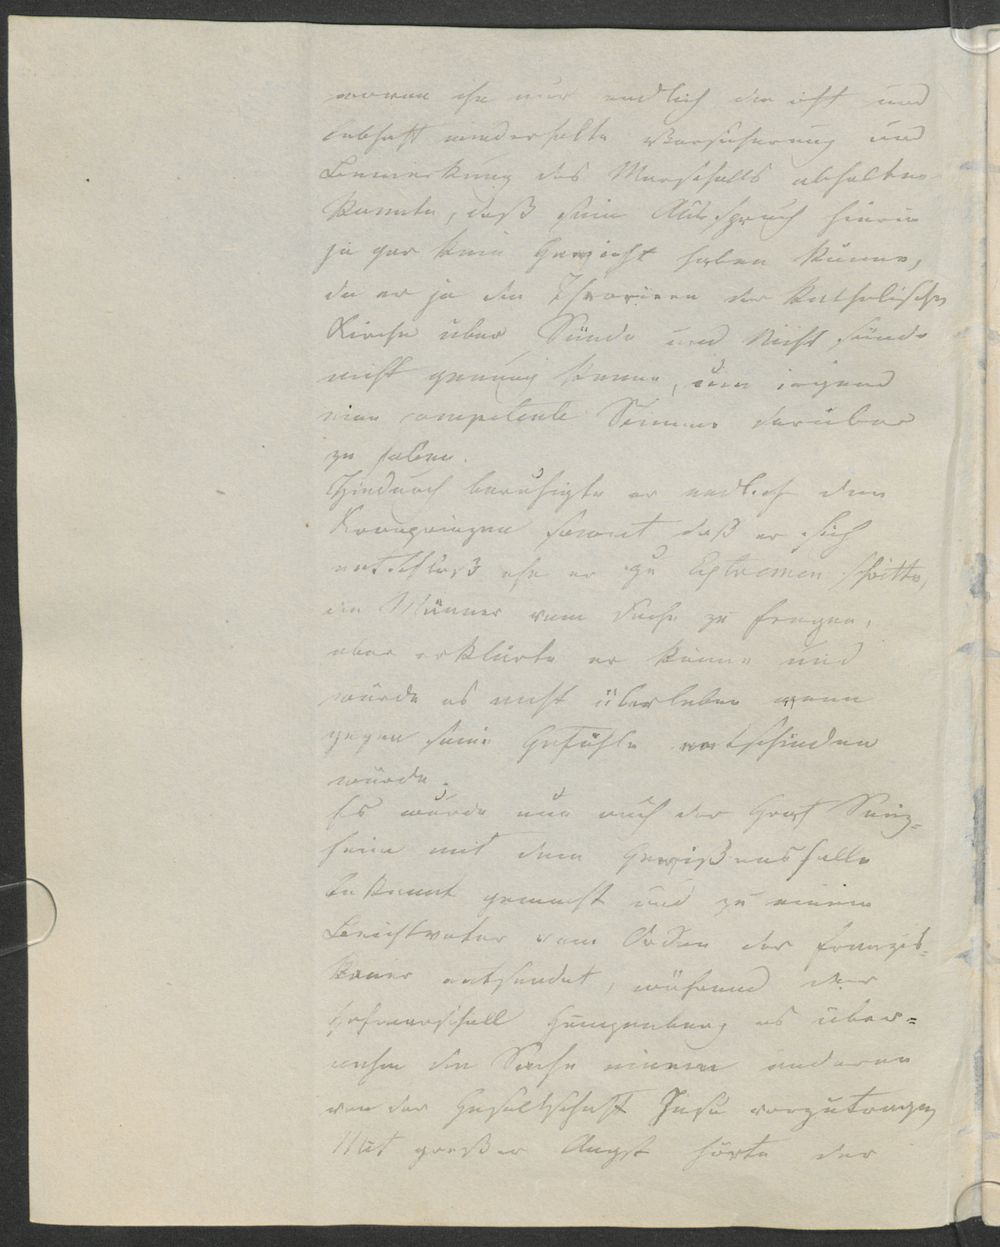 wovon ihn nur endlich die oft und
lebhaft wiederholte Versicherung und
Bemerkung des Marschalls abhalten
konnte, daß sein Ausspruch hierin
ja gar kein Gewicht haben könne,
da er ja die Theorieen der katholischen
Kirche über Sünde und Nicht sünde
nicht genug kenne, um irgend
eine competente Stimme darüber
zu haben.
Hiedurch beruhigte er endlich den
Kronprinzen soweit daß er sich
entschloß ehe er zu Extremen schritte,
die Männer vom Fache zu fragen,
aber erklärte er könne und
würde es nicht überleben wenn
gegen seine Gefühle entschieden
würde.
Es wurde nun auch der Graf Seins=
heim mit dem Gewißensfalle
bekannt gemacht und zu einem
Beichtvater vom Orden der Franzis=
kaner entsendet, während der
Hofmarschall Gumppenberg es über=
nahm die Sache einem anderen
von der Gesellschaft Jesu vorzutragen
Mit großer Angst hörte der